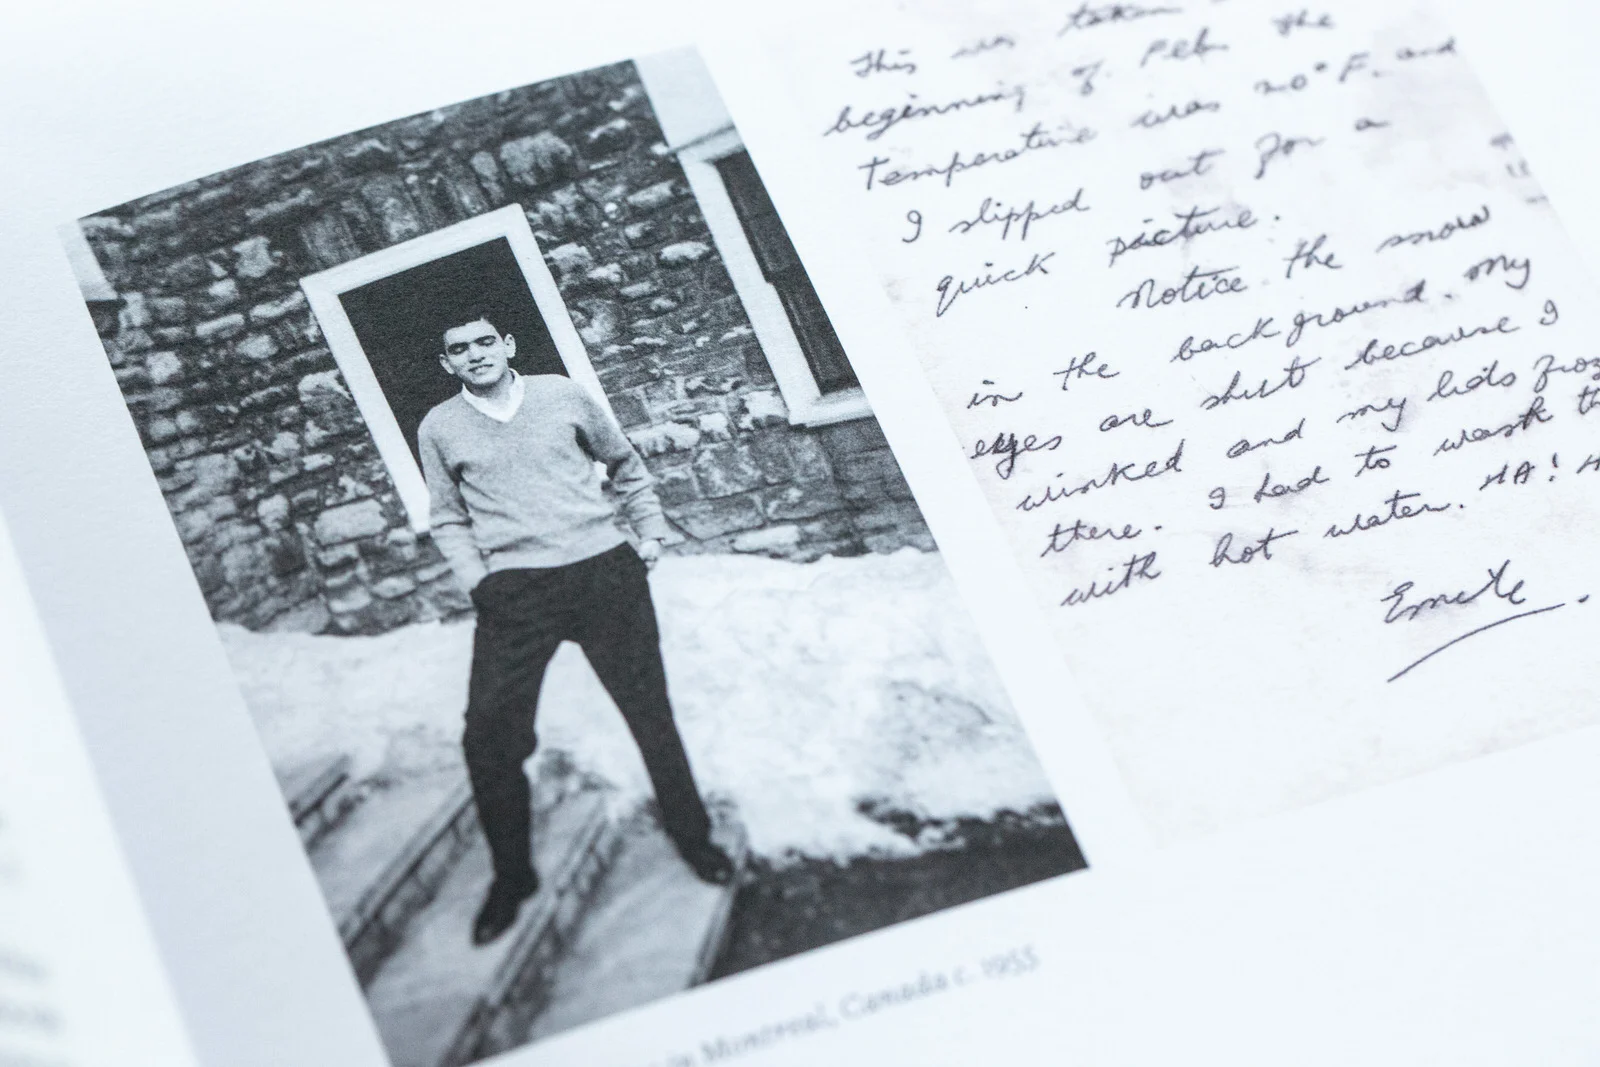 This was taken
beginning of Feb the
temperature was 20° F. and
I slipped out for a
quick picture.
Notice the snow
in the background. My
eyes are shut because I
winked and my lids
there. I had to wash
with hot water. HA!
Emile.
in Montreal, Canada c. 1955